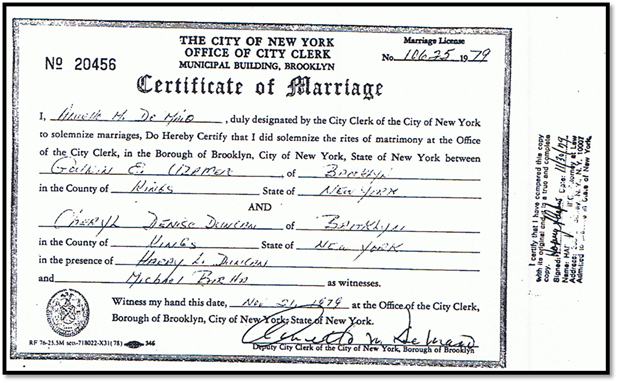 THE CITY OF NEW YORK
OFFICE OF CITY CLERK
MUNICIPAL BUILDING, BROOKLYN
Marriage License
No. 10625 1979
No 20456
Certificate of Marriage
I, M. De , duly designated by the City Clerk of the City of New York
to solemnize marriages, Do Hereby Certify that I did solemnize the rites of matrimony at the Office
of the City Clerk, in the Borough of Brooklyn, City of New York, State of New York between
E. of Brooklyn
in the County of Kings State of New York
AND
Cheryl Denise Duncan of Brooklyn
in the County of Kings State of New York
in the presence of Harry L. Duncan
and Michael as witnesses.
Witness my hand this date, Nov 21, 1979 at the Office of the City Clerk,
Borough of Brooklyn, City of New York, State of New York.
Deputy City Clerk of the City of New York, Borough of Brooklyn
RF 76-25.5M 346
I certify that I have compared this copy
with its original and is a true and complete
copy.
Signed: Date:
Name:
Address: N.Y. 10007
Admitted to State of New York.